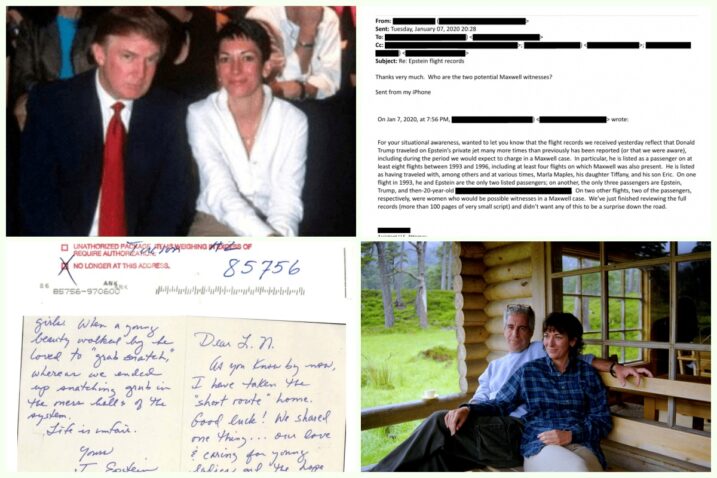 From: ( )
Sent: Tuesday, January 07, 2020 20:28
To: < >
Cc: >; ( ) < >;
( ) < >
Subject: Re: Epstein flight records
Thanks very much. Who are the two potential Maxwell witnesses?
Sent from my iPhone
On Jan 7, 2020, at 7:56 PM, ( ) < > wrote:
For your situational awareness, wanted to let you know that the flight records we received yesterday reflect that Donald
Trump traveled on Epstein's private jet many more times than previously has been reported (or that we were aware),
including during the period we would expect to charge in a Maxwell case. In particular, he is listed as a passenger on at
least eight flights between 1993 and 1996, including at least four flights on which Maxwell was also present. He is listed
as having traveled with, among others and at various times, Marla Maples, his daughter Tiffany, and his son Eric. On one
flight in 1993, he and Epstein are the only two listed passengers; on another, the only three passengers are Epstein,
Trump, and then-20-year-old On two other flights, two of the passengers,
respectively, were women who would be possible witnesses in a Maxwell case. We've just finished reviewing the full
records (more than 100 pages of very small script) and didn't want any of this to be a surprise down the road.
UNAUTHORIZED
REQUIRE
NO LONGER AT THIS ADDRESS.
85756
85756-970600
girls. When a young
beauty walked by he
loved to "grab snatch,"
whereas we ended
up snatching grub in
the mess halls of the
system.
Life is unfair.
Yours
J. Epstein
Dear L.N.
As you know by now,
I have taken the
"short route" home.
Good luck! We shared
one thing... our love
& caring for young
ladies and the hope